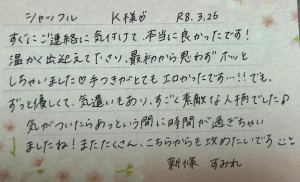 シャッフル K様♡ R8.3.26
すぐにご連絡に気付けて、本当に良かったです!
温かく出迎えて下さり、最初から思わずホッと
しちゃいました♡手つきがとてもエロかったです…!!でも、
ずっと優しくて、気遣いもあり、すごく素敵な人柄でした♪
気がついたらあっという間に時間が過ぎちゃい
ましたね!またたくさん、こちらからも攻めたいです
新條 すみれ